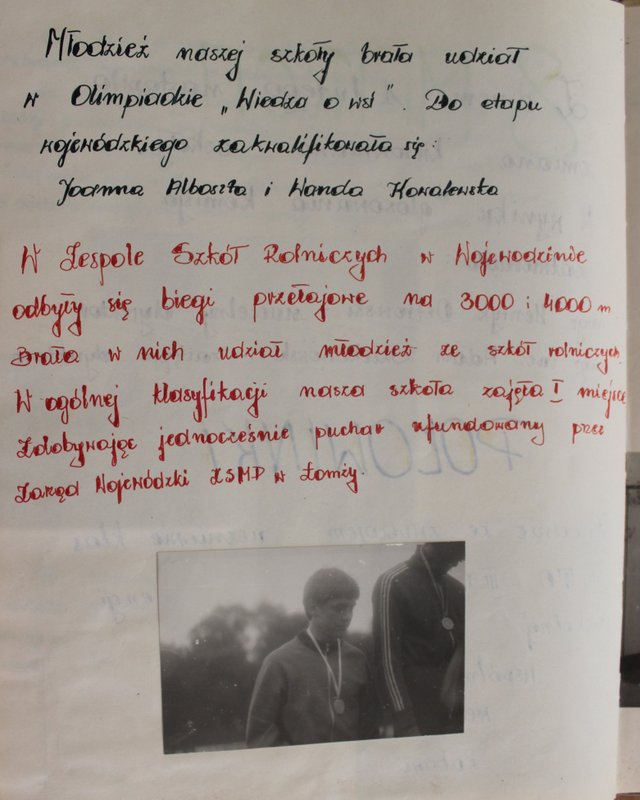 Młodzież naszej szkoły brała udział
w Olimpiadzie „Wiedza o wsi”. Do etapu
wojewódzkiego zakwalifikowała się:
Joanna Albaszta i Wanda Kowalewska
W Zespole Szkół Rolniczych w Wojewodzinie
odbyły się biegi przełajowe na 3000 i 4000 m
Brała w nich udział młodzież ze szkół rolniczych.
W ogólnej klasyfikacji nasza szkoła zajęła I miejsce
zdobywając jednocześnie puchar ufundowany przez
Zarząd Wojewódzki ZSMP w Łomży.